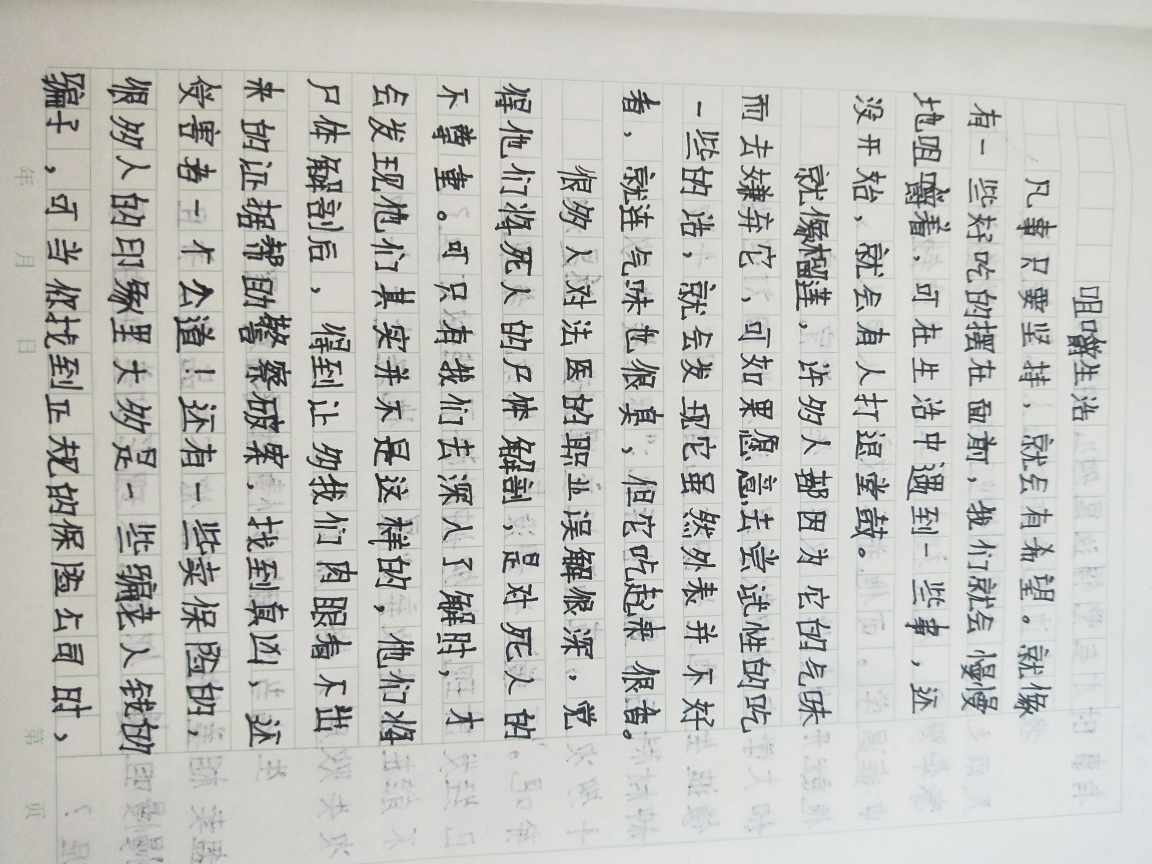 咀嚼生活
凡事只要坚持，就会有希望。就像
有一些好吃的摆在面前，我们就会慢慢
地咀嚼着，可在生活中遇到一些事，还
没开始，就会有人打退堂鼓。
就像榴莲，许多人都因为它的气味
而去嫌弃它，可如果愿意去尝试性的吃
一些的话，就会发现它虽然外表并不好
看，就连气味也很臭，但它吃起来很香。
很多人对法医的职业误解很深，觉
得他们将死人的尸体解剖，是对死人的
不尊重。可只有我们去深入了解时，才
会发现他们其实并不是这样的，他们将
尸体解剖后，得到让多我们肉眼看不出
来的证据帮助警察破案，找到真凶，还
受害者一个公道！还有一些卖保险的，
很多人的印象里大多是一些骗老人钱的
骗子，可当你找到正规的保险公司时，
年 月 日
第 页